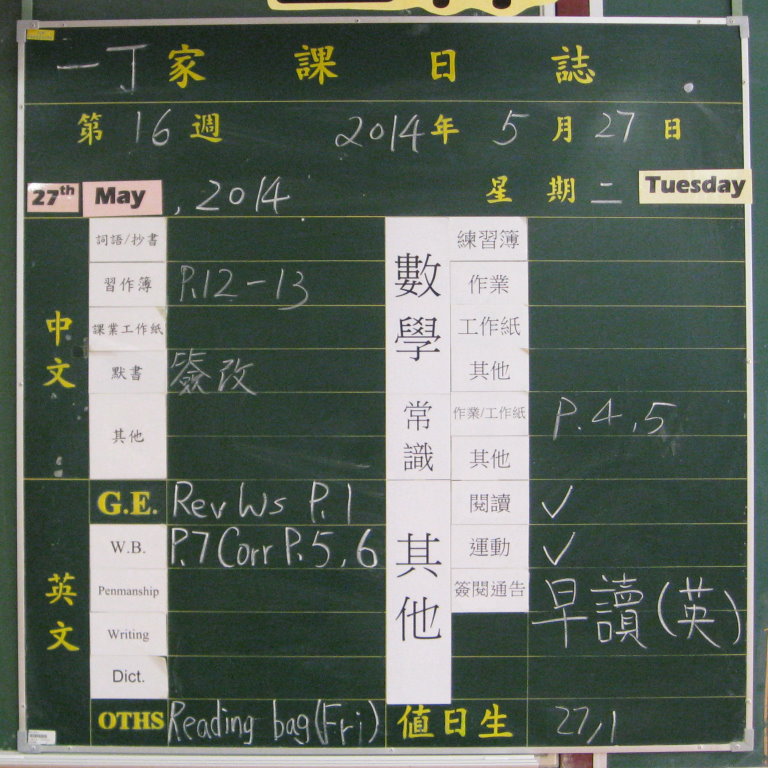 一丁家課日誌
第16週 2014年5月27日
27th May, 2014 星期二 Tuesday
中文
詞語/抄書
習作簿 P.12-13
課業工作紙
默書 簽改
其他
英文
G.E. Rev Ws P.1
W.B. P.7 Corr P.5,6
Penmanship
Writing
Dict.
OTHS Reading bag(Fri)
數學
練習簿
作業
工作紙
其他
常識
作業/工作紙 P.4,5
其他
其他
閱讀 ✓
運動 ✓
簽閱通告
早讀(英)
值日生 27,1